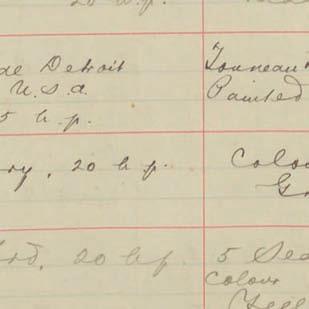 20 h.p.
de Detroit
U.S.a.
5 h.p.
"Tonneau"
Painted
ry, 20 h.p.
Colou
Gr
rd, 20 h.p.
5 Sea
Colour
Yell